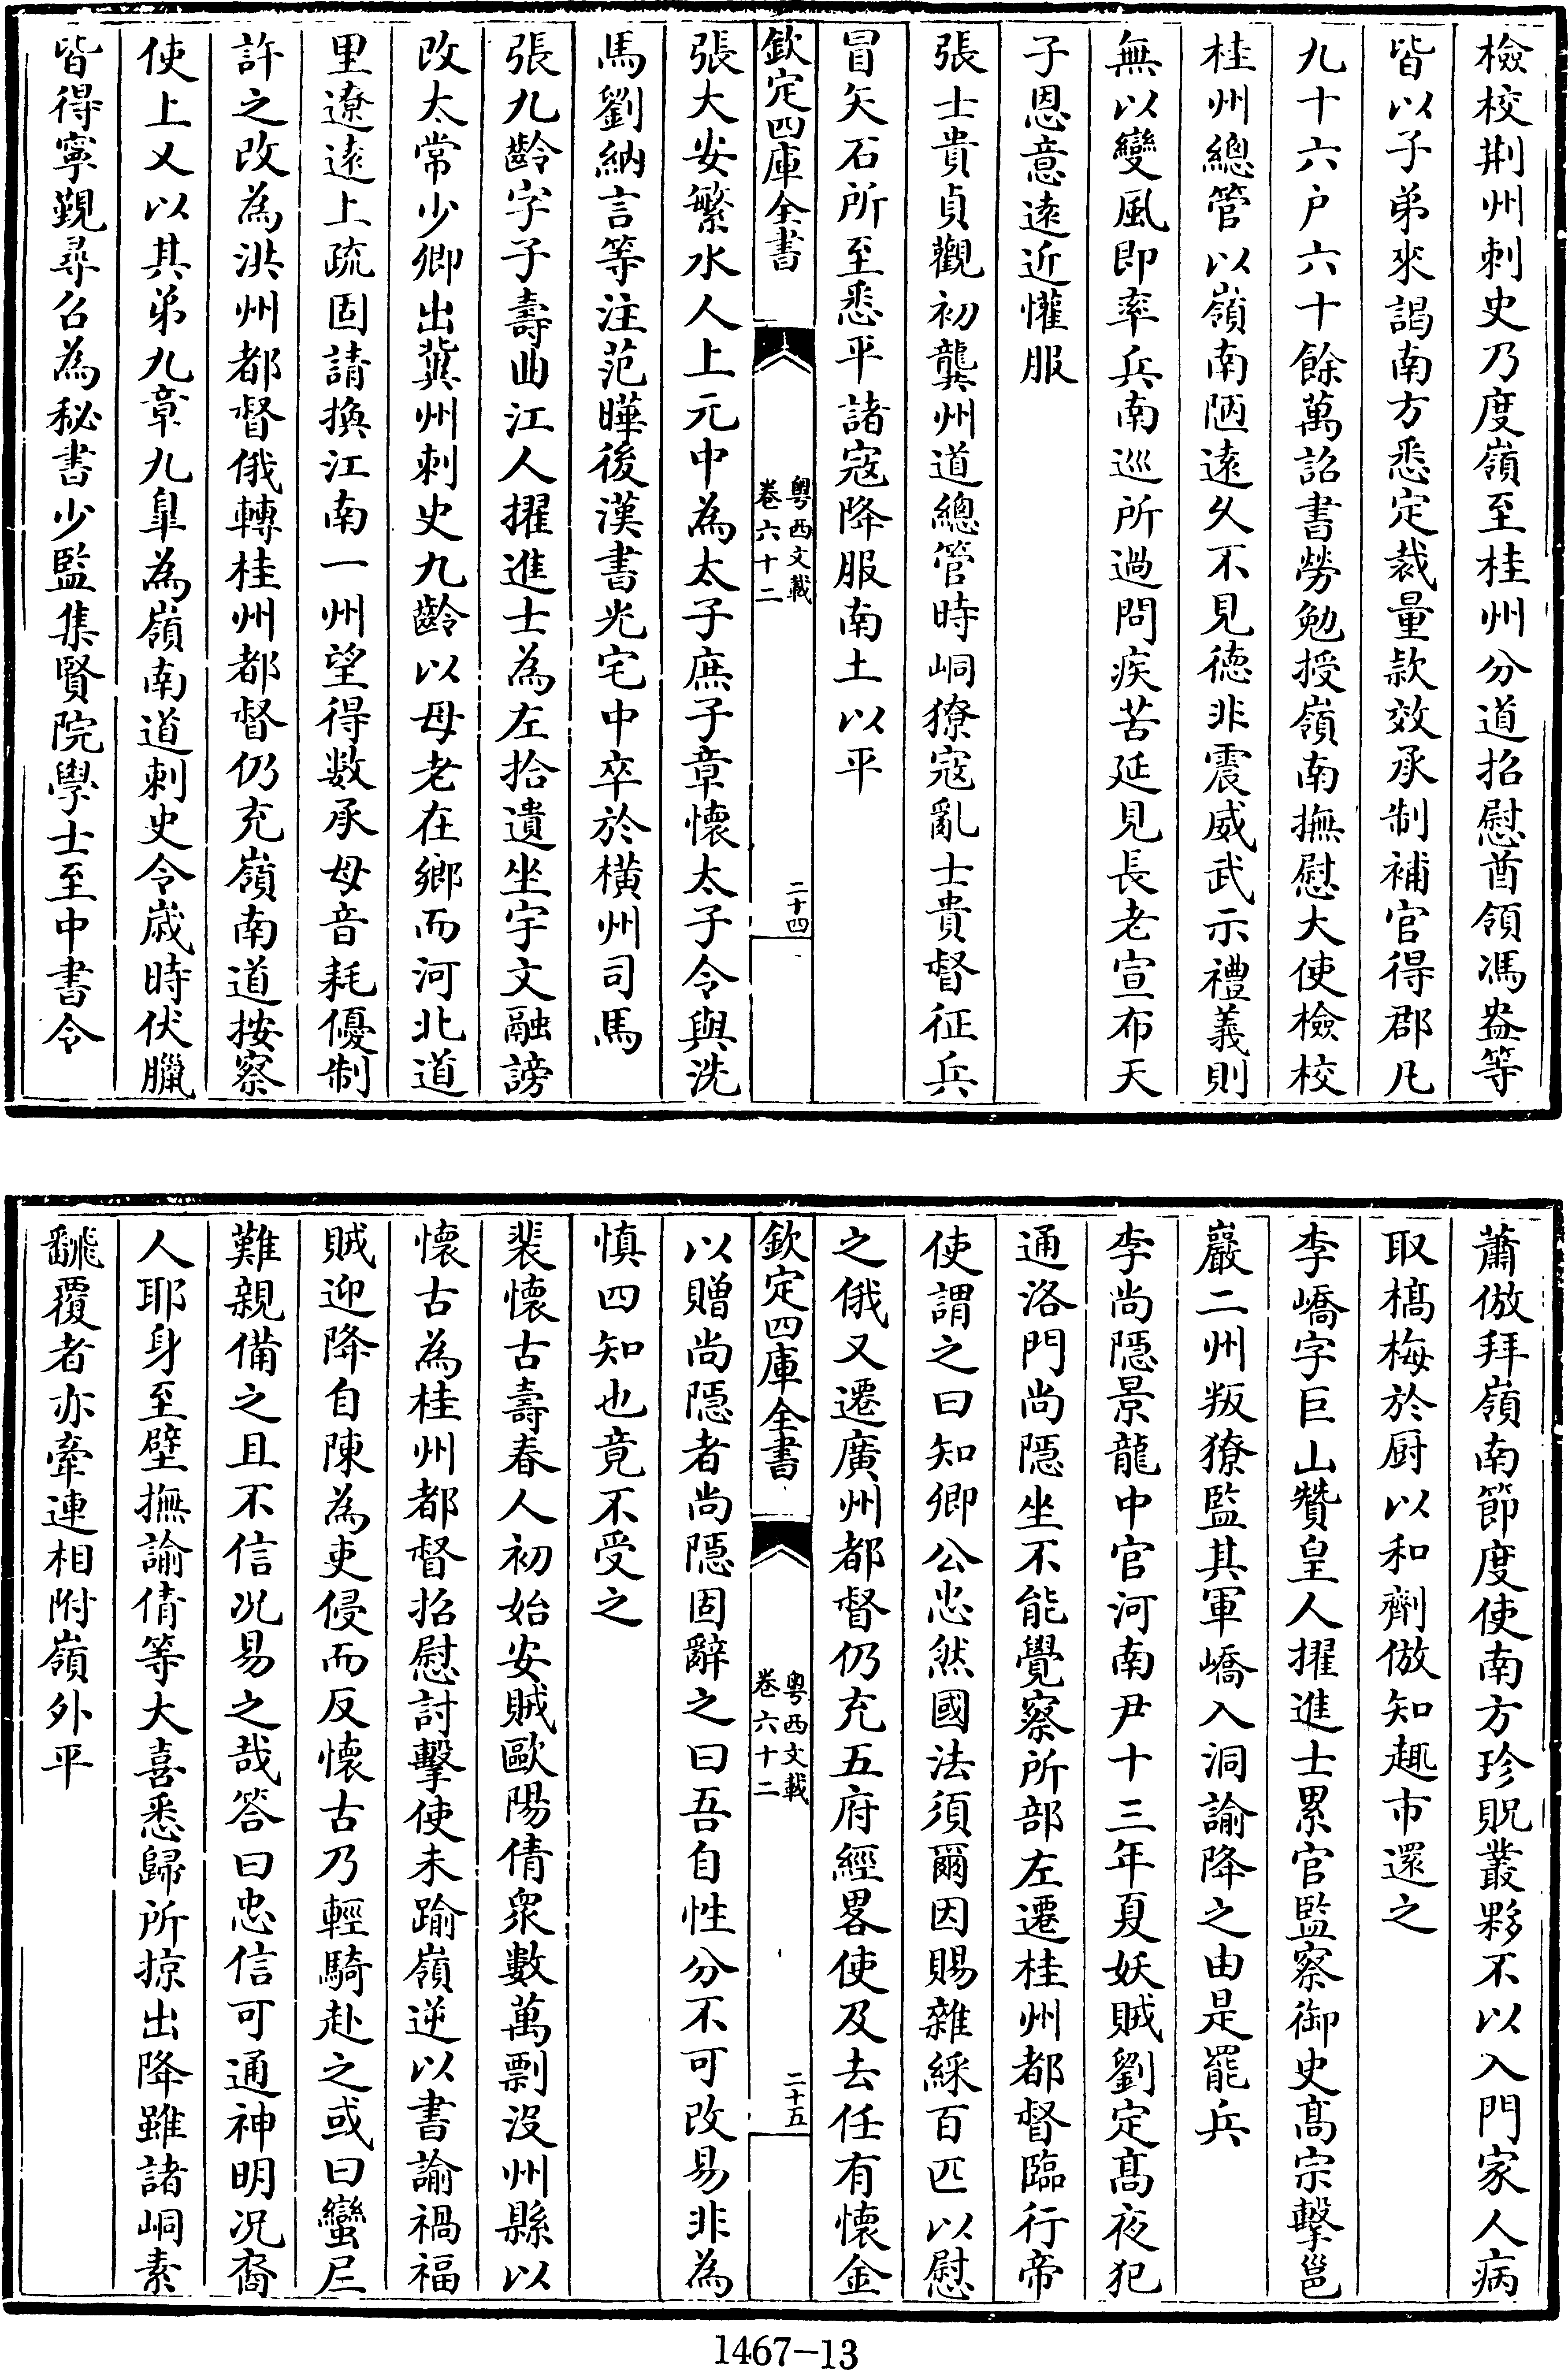 檢校荆州刺史乃度嶺至桂州分道招慰酋領馮盎等
皆以子弟來謁南方悉定裁量款效承制補官得郡凡
九十六戶六十餘萬詔書勞勉授嶺南撫慰大使檢校
桂州總管以嶺南陋遠久不見德非震威武示禮義則
無以變風即率兵南巡所過問疾苦延見長老宣布天
子恩意遠近懽服
張士貴貞觀初龔州道總管時峒獠寇亂士貴督征兵
冒矢石所至悉平諸寇降服南土以平
欽定四庫全書
粵西文載
卷六十二
二十四
張大安繁水人上元中為太子庶子章懷太子令與洗
馬劉納言等注范曄後漢書光宅中卒於橫州司馬
張九齡字子壽曲江人擢進士為左拾遺坐宇文融謗
改太常少卿出冀州刺史九齡以母老在鄉而河北道
里遼遠上疏固請換江南一州望得數承母音耗優制
許之改為洪州都督俄轉桂州都督仍充嶺南道按察
使上又以其弟九章九臯為嶺南道刺史令歲時伏臘
皆得寧覲尋召為秘書少監集賢院學士至中書令
蕭倣拜嶺南節度使南方珍貺叢夥不以入門家人病
取槁梅於厨以和劑倣知趣市還之
李嶠字巨山贊皇人擢進士累官監察御史髙宗擊邕
巖二州叛獠監其軍嶠入洞諭降之由是罷兵
李尚隱景龍中官河南尹十三年夏妖賊劉定髙夜犯
通洛門尚隱坐不能覺察所部左遷桂州都督臨行帝
使謂之曰知卿公忠然國法須爾因賜雜綵百匹以慰
之俄又遷廣州都督仍充五府經畧使及去任有懷金
欽定四庫全書
粵西文載
卷六十二
二十五
以贈尚隱者尚隱固辭之曰吾自性分不可改易非為
慎四知也竟不受之
裴懷古壽春人初始安賊歐陽倩衆數萬剽沒州縣以
懷古為桂州都督招慰討擊使未踰嶺逆以書諭禍福
賊迎降自陳為吏侵而反懷古乃輕騎赴之或曰蠻𡰥
難親備之且不信況易之哉答曰忠信可通神明況裔
人耶身至壁撫諭倩等大喜悉歸所掠出降雖諸峒素
飜覆者亦牽連相附嶺外平
1467-13